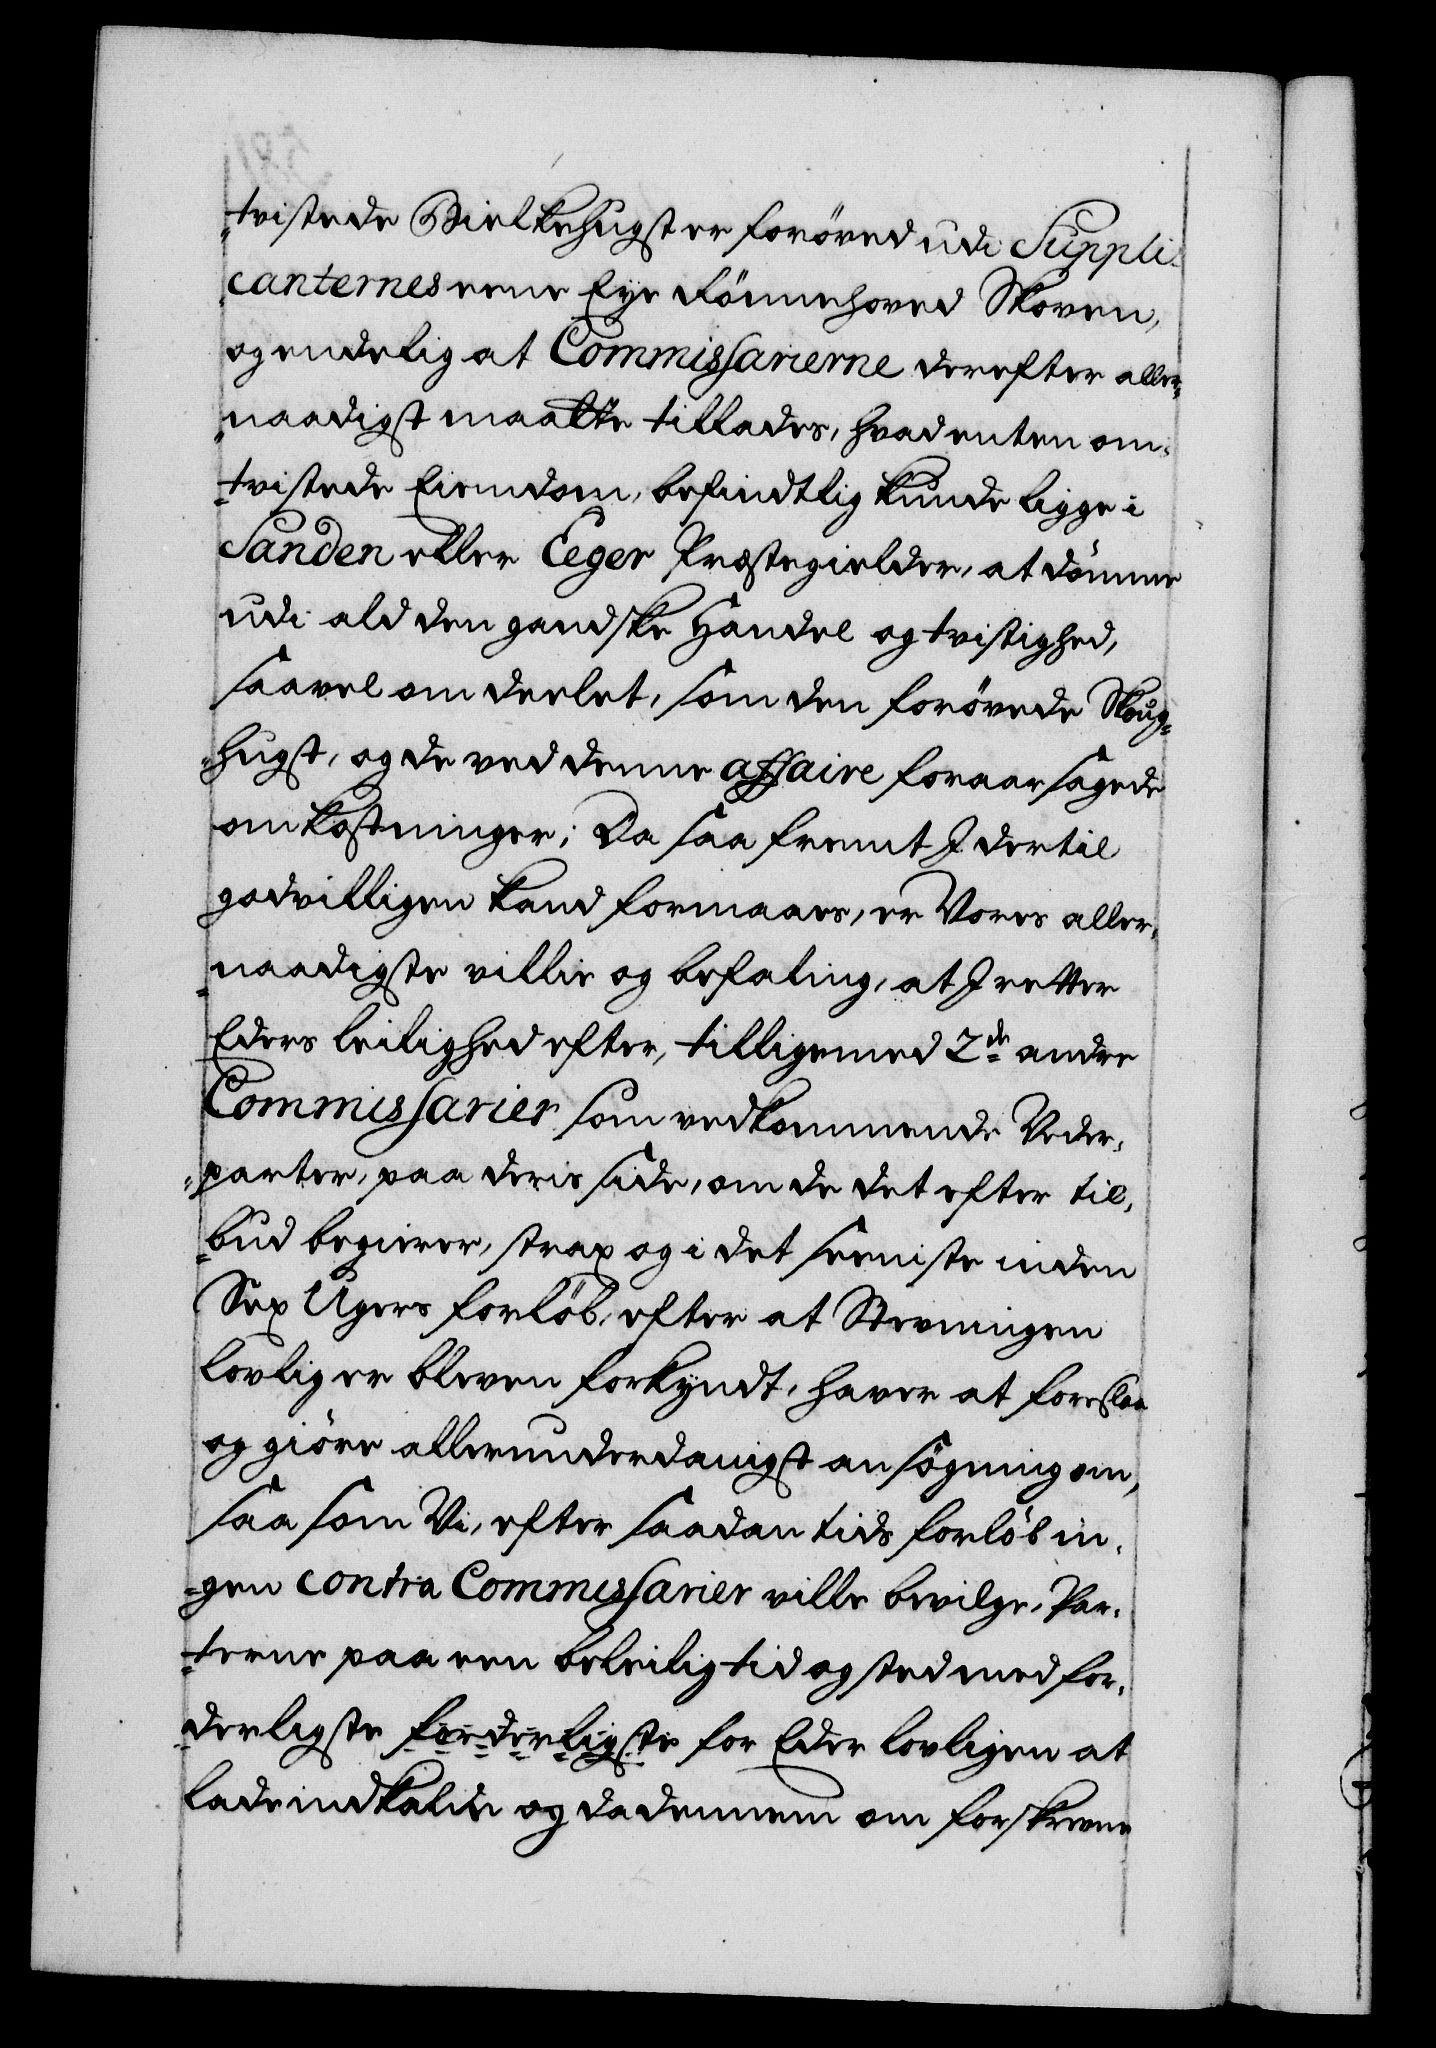 tvistede Bielkehugst er forøved udi Suppli-
canternes eene Eye Tönnehoved Skoven,
og endelig at Commissarierne derefter aller-
naadigst maatte tillades, hvad enten om-
tvistede Eiendom, befindtlig kunde ligge i
Sanden eller Eeger Præstegielder, at dömme
udi ald den gandske Handel og tvistighed,
saavel om deelet, som den forövede Skoug-
hugst, og de ved denne affaire foraarsagede
omkostninger; Da saafremt I dertil
godvilligen kand formaaes, er Vores aller-
naadigste villie og befaling, at I retter
Eders leilighed efter, tilligemed 2de andre
Commissarier som vedkommende Veder-
parter, paa deris side, om de det efter til-
bud begierer, strax og i det seeniste inden
Sex Ugers forlöb, efter at Stevningen
lovlig er bleven forkyndt, haver at foreslaa
og giöre allerunderdanigst ansögning om,
saa som Vi, efter saadan tids forlöb in-
gen contra Commissarier ville bevilge, Par-
terne paa een beleilig tid og sted med for-
derligste forderligste for Eder lovligen at
lade indkalde og da dennem om forskrevne